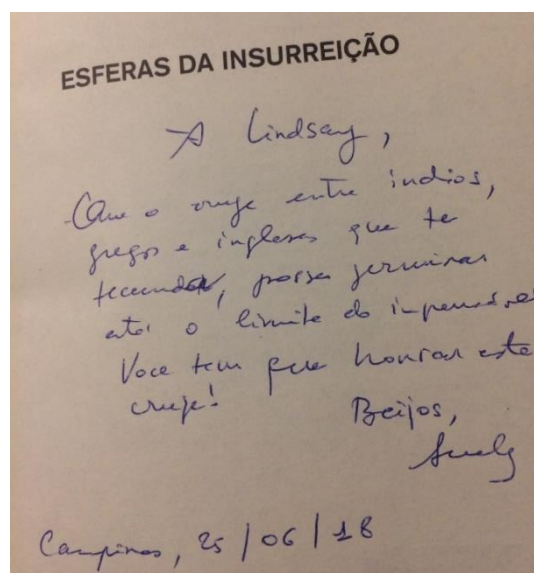 ESFERAS DA INSURREIÇÃO
A Lindsay,
Que o cruze entre índios,
gregos e ingleses que te
fecundou, possa germinar
até o limite do impensável
Voce tem que honrar este
cruze!
Beijos,
Suely
Campinas, 25/06/18